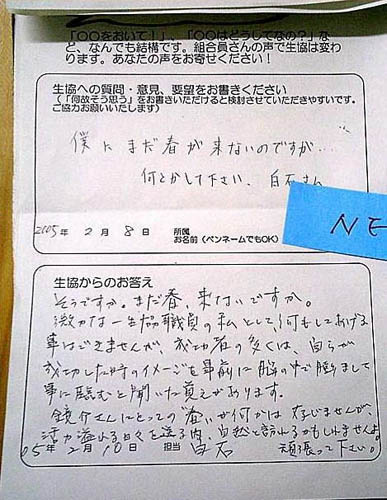 「〇〇をおいて！」、「〇〇はどうしてなの？」な
ど、なんでも結構です。組合員さんの声で生協は変わ
ります。あなたの声をお寄せください！
生協への質問・意見、要望をお書きください
（「何故そう思う」をお書きいただけると検討させていただきやすいです。
ご協力お願いいたします）
僕にまだ春が来ないのですが…
何とかして下さい、白石さん
2005年 2月 8日 所属
お名前（ペンネームでもOK）
NE
生協からのお答え
そうですか。まだ春、来ないですか。
微力な一生協職員の私として、何もしてあげる
事はできませんが、成功者の多くは、自らが
成功した時のイメージを事前に脳の中で創りまして
事に臨むと聞いた覚えがあります。
鏡介さんにとっての春が何かは存じませんが、
活力溢れる日々を送る内、自然と訪れるかもしれませんよ。
頑張って下さい。
05年 2月 10日 担当 白石